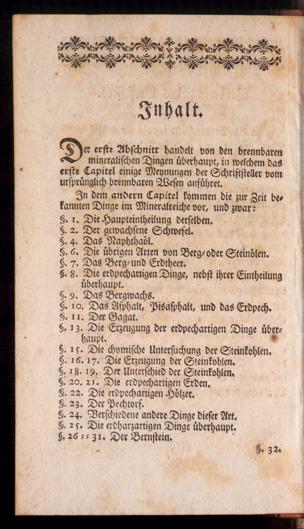 Inhalt.
Der erste Abschnitt handelt von den brennbaren
mineralischen Dingen überhaupt, in welchem das
erste Capitel einige Meynungen der Schriftsteller vom
ursprünglich brennbaren Wesen anführet.
In dem andern Capitel kommen die zur Zeit be-
kannten Dinge im Mineralreiche vor, und zwar:
§. 1. Die Haupteintheilung derselben.
§. 2. Der gewachsene Schwefel.
§. 4. Das Naphthaöl.
§. 6. Die übrigen Arten von Berg- oder Steinölen.
§. 7. Das Berg- und Erdtheer.
§. 8. Die erdpechartigen Dinge, nebst ihrer Eintheilung
überhaupt.
§. 9. Das Bergwachs.
§. 10. Das Asphalt, Pisasphalt, und das Erdpech.
§. 11. Der Gagat.
§. 13. Die Erzeugung der erdpechartigen Dinge über-
haupt.
§. 15. Die chymische Untersuchung der Steinkohlen.
§. 16. 17. Die Erzeugung der Steinkohlen.
§. 18. 19. Der Unterschied der Steinkohlen.
§. 20. 21. Die erdpechartigen Erden.
§. 22. Die erdpechartigen Hölzer.
§. 23. Der Pechtorf.
§. 24. Verschiedene andere Dinge dieser Art.
§. 25. Die erdharzartigen Dinge überhaupt.
§. 26 = = 31. Der Bernstein.
§. 32.